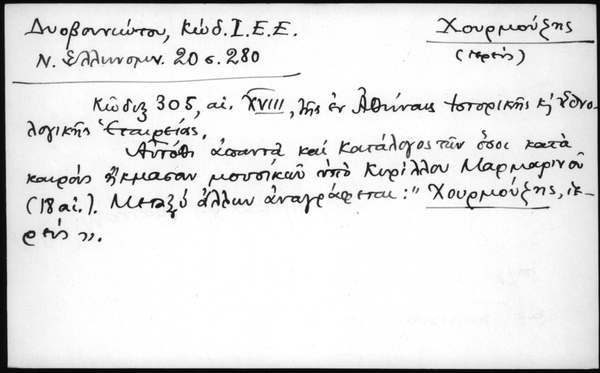 Δυοβουνιώτου, Κώδ. Ι.Ε.Ε.
Χουρμούζης
(ἱερεύς)
Ν. Ἑλληνομν. 20 σ. 280
Κῶδιξ 305, αἰ. XVIII, τῆς ἐν Ἀθήναις Ἱστορικῆς κ' Ἐθνο-
λογικῆς Ἑταιρείας.
Αὐτόθι ἀπαντᾶ καὶ κατάλογος τῶν ὅσοι κατὰ
καιροὺς ἤκμασαν μουσικῶν ὑπὸ Κυρίλλου Μαρμαρινοῦ
(18 αἰ.). Μεταξὺ ἄλλων ἀναγράφεται: "Χουρμούζης, ἱε-
ρεύς".